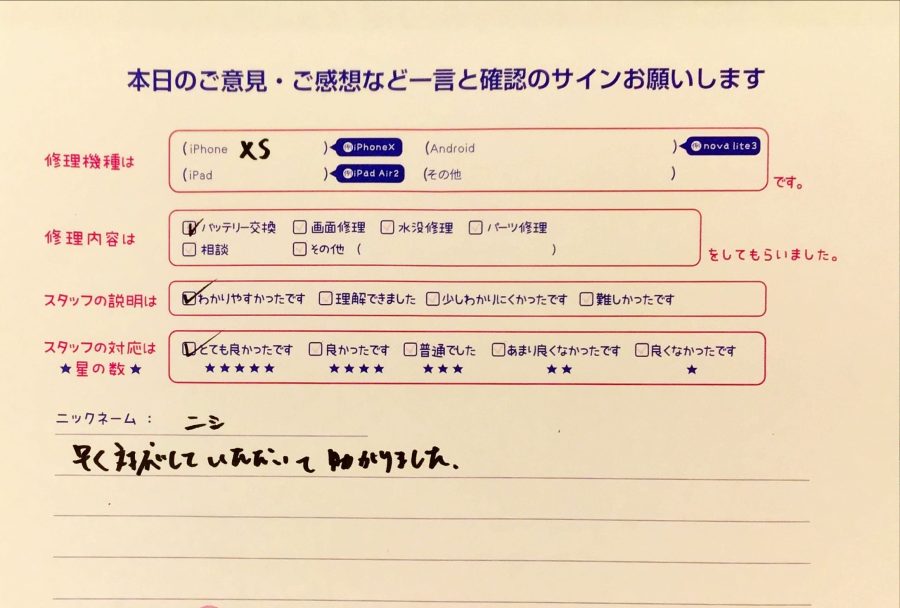 本日のご意見・ご感想など一言と確認のサインお願いします
修理機種は (iPhone XS ) iPhoneX (Android ) nova lite3
(iPad ) iPad Air2 (その他 ) です。
修理内容は バッテリー交換 画面修理 水没修理 パーツ修理
相談 その他 ( ) をしてもらいました。
スタッフの説明は わかりやすかったです 理解できました 少しわかりにくかったです 難しかったです
スタッフの対応は とても良かったです 良かったです 普通でした あまり良くなかったです 良くなかったです
★星の数★ ★★★★★ ★★★★ ★★★ ★★ ★
ニックネーム： ニシ
早く対応していただいて助かりました。